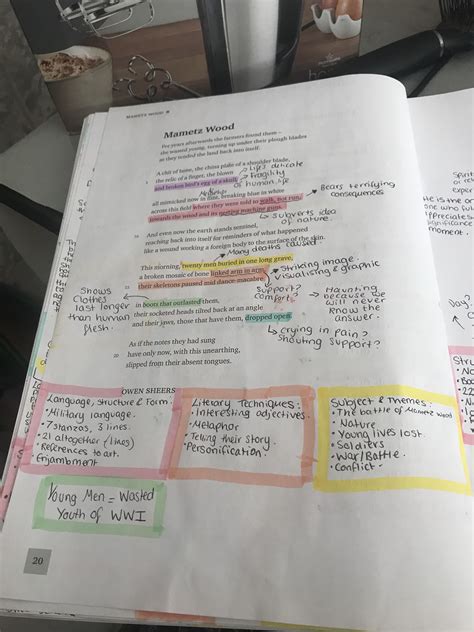 MAMETZ WOOD
Mametz Wood
For years afterwards the farmers found them –
the wasted young, turning up under their plough blades
as they tended the land back into itself.
A chit of bone, the china plate of a shoulder blade,
the relic of a finger, the blown
and broken bird's egg of a skull,
Life's delicate
Fragility
of human life.
Metaphor
all mimicked now in flint, breaking blue in white
across this field where they were told to walk, not run,
towards the wood and its nesting machine guns.
Bears terrifying
consequences
subverts idea
of nature.
And even now the earth stands sentinel,
reaching back into itself for reminders of what happened
like a wound working a foreign body to the surface of the skin.
Many deaths caused.
This morning, twenty men buried in one long grave,
a broken mosaic of bone linked arm in arm,
their skeletons paused mid dance-macabre
Striking image.
visualising & graphic
Shows
Clothes
last longer
than human
flesh.
support?
comfort?
Haunting
because we
will never
know the
answer.
in boots that outlasted them,
their socketed heads tilted back at an angle
and their jaws, those that have them, dropped open.
crying in pain?
shouting support?
As if the notes they had sung
have only now, with this unearthing,
slipped from their absent tongues.
OWEN SHEERS
Language, structure & Form:
• Military language.
• 7 stanzas, 3 lines.
• 21 altogether (lines)
• References to art.
• Enjambment
Literary Techniques:
• Interesting adjectives.
• Metaphor
• Telling their story.
• Personification.
Subject & Themes:
• The battle of Mametz Wood
• Nature
• Young lives lost.
• Soldiers
• War/Battle.
• Conflict.
Young Men = Wasted
Youth of WWI
20